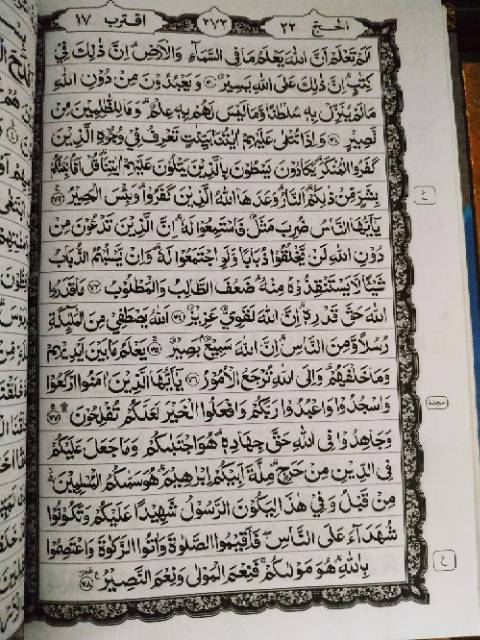 اقترب ١٧
٢٧٣
الحج ٢٢
اَلَمۡ تَعۡلَمۡ اَنَّ اللّٰهَ يَعۡلَمُ مَا فِى السَّمَآءِ وَالۡاَرۡضِؕ اِنَّ ذٰلِكَ فِىۡ
كِتٰبٍؕ اِنَّ ذٰلِكَ عَلَى اللّٰهِ يَسِيۡرٌ ﴿۷۰﴾ وَيَعۡبُدُوۡنَ مِنۡ دُوۡنِ اللّٰهِ
مَا لَمۡ يُنَزِّلۡ بِهٖ سُلۡطٰنًا وَّمَا لَـيۡسَ لَهُمۡ بِهٖ عِلۡمٌؕ وَمَا لِلظّٰلِمِيۡنَ مِنۡ
نَّصِيۡرٍ ﴿۷۱﴾ وَاِذَا تُتۡلٰى عَلَيۡهِمۡ اٰيٰتُنَا بَيِّنٰتٍ تَعۡرِفُ فِىۡ وُجُوۡهِ الَّذِيۡنَ
كَفَرُوا الۡمُنۡكَرَؕ يَكَادُوۡنَ يَسۡطُوۡنَ بِالَّذِيۡنَ يَتۡلُوۡنَ عَلَيۡهِمۡ اٰيٰتِنَاؕ قُلۡ اَفَاُنَبِّئُكُمۡ
بِشَرٍّ مِّنۡ ذٰلِكُمۡؕ اَلنَّارُؕ وَعَدَهَا اللّٰهُ الَّذِيۡنَ كَفَرُوۡاؕ وَبِئۡسَ الۡمَصِيۡرُ ﴿۷۲﴾
يٰۤاَيُّهَا النَّاسُ ضُرِبَ مَثَلٌ فَاسۡتَمِعُوۡا لَهٗؕ اِنَّ الَّذِيۡنَ تَدۡعُوۡنَ مِنۡ
دُوۡنِ اللّٰهِ لَنۡ يَّخۡلُقُوۡا ذُبَابًا وَّلَوِ اجۡتَمَعُوۡا لَهٗؕ وَاِنۡ يَّسۡلُبۡهُمُ الذُّبَابُ
شَيۡـًٔـا لَّا يَسۡتَـنۡـقِذُوۡهُ مِنۡهُؕ ضَعُفَ الطَّالِبُ وَالۡمَطۡلُوۡبُ ﴿۷۳﴾ مَا قَدَرُوا
اللّٰهَ حَقَّ قَدۡرِهٖؕ اِنَّ اللّٰهَ لَقَوِىٌّ عَزِيۡزٌ ﴿۷۴﴾ اَللّٰهُ يَصۡطَفِىۡ مِنَ الۡمَلٰٓٮِٕكَةِ
رُسُلًا وَّمِنَ النَّاسِؕ اِنَّ اللّٰهَ سَمِيۡعٌۢ بَصِيۡرٌ ﴿۷۵﴾ يَعۡلَمُ مَا بَيۡنَ اَيۡدِيۡهِمۡ
وَمَا خَلۡفَهُمۡؕ وَاِلَى اللّٰهِ تُرۡجَعُ الۡاُمُوۡرُ ﴿۷۶﴾ يٰۤاَيُّهَا الَّذِيۡنَ اٰمَنُوا ارۡكَعُوۡا
وَاسۡجُدُوۡا وَاعۡبُدُوۡا رَبَّكُمۡ وَافۡعَلُوا الۡخَيۡرَ لَعَلَّكُمۡ تُفۡلِحُوۡنَ ۩ ﴿۷۷﴾
وَجَاهِدُوۡا فِى اللّٰهِ حَقَّ جِهَادِهٖؕ هُوَ اجۡتَبٰٮكُمۡ وَمَا جَعَلَ عَلَيۡكُمۡ
فِى الدِّيۡنِ مِنۡ حَرَجٍؕ مِلَّةَ اَبِيۡكُمۡ اِبۡرٰهِيۡمَؕ هُوَ سَمّٰٮكُمُ الۡمُسۡلِمِيۡنَ
مِنۡ قَبۡلُ وَفِىۡ هٰذَا لِيَكُوۡنَ الرَّسُوۡلُ شَهِيۡدًا عَلَيۡكُمۡ وَتَكُوۡنُوۡا
شُهَدَآءَ عَلَى النَّاسِ ۖۚ فَاَقِيۡمُوا الصَّلٰوةَ وَاٰتُوا الزَّكٰوةَ وَاعۡتَصِمُوۡا
بِاللّٰهِؕ هُوَ مَوۡلٰٮكُمۡۚ فَنِعۡمَ الۡمَوۡلٰى وَنِعۡمَ النَّصِيۡرُ ﴿۷۸﴾
ع
سجدة
ع